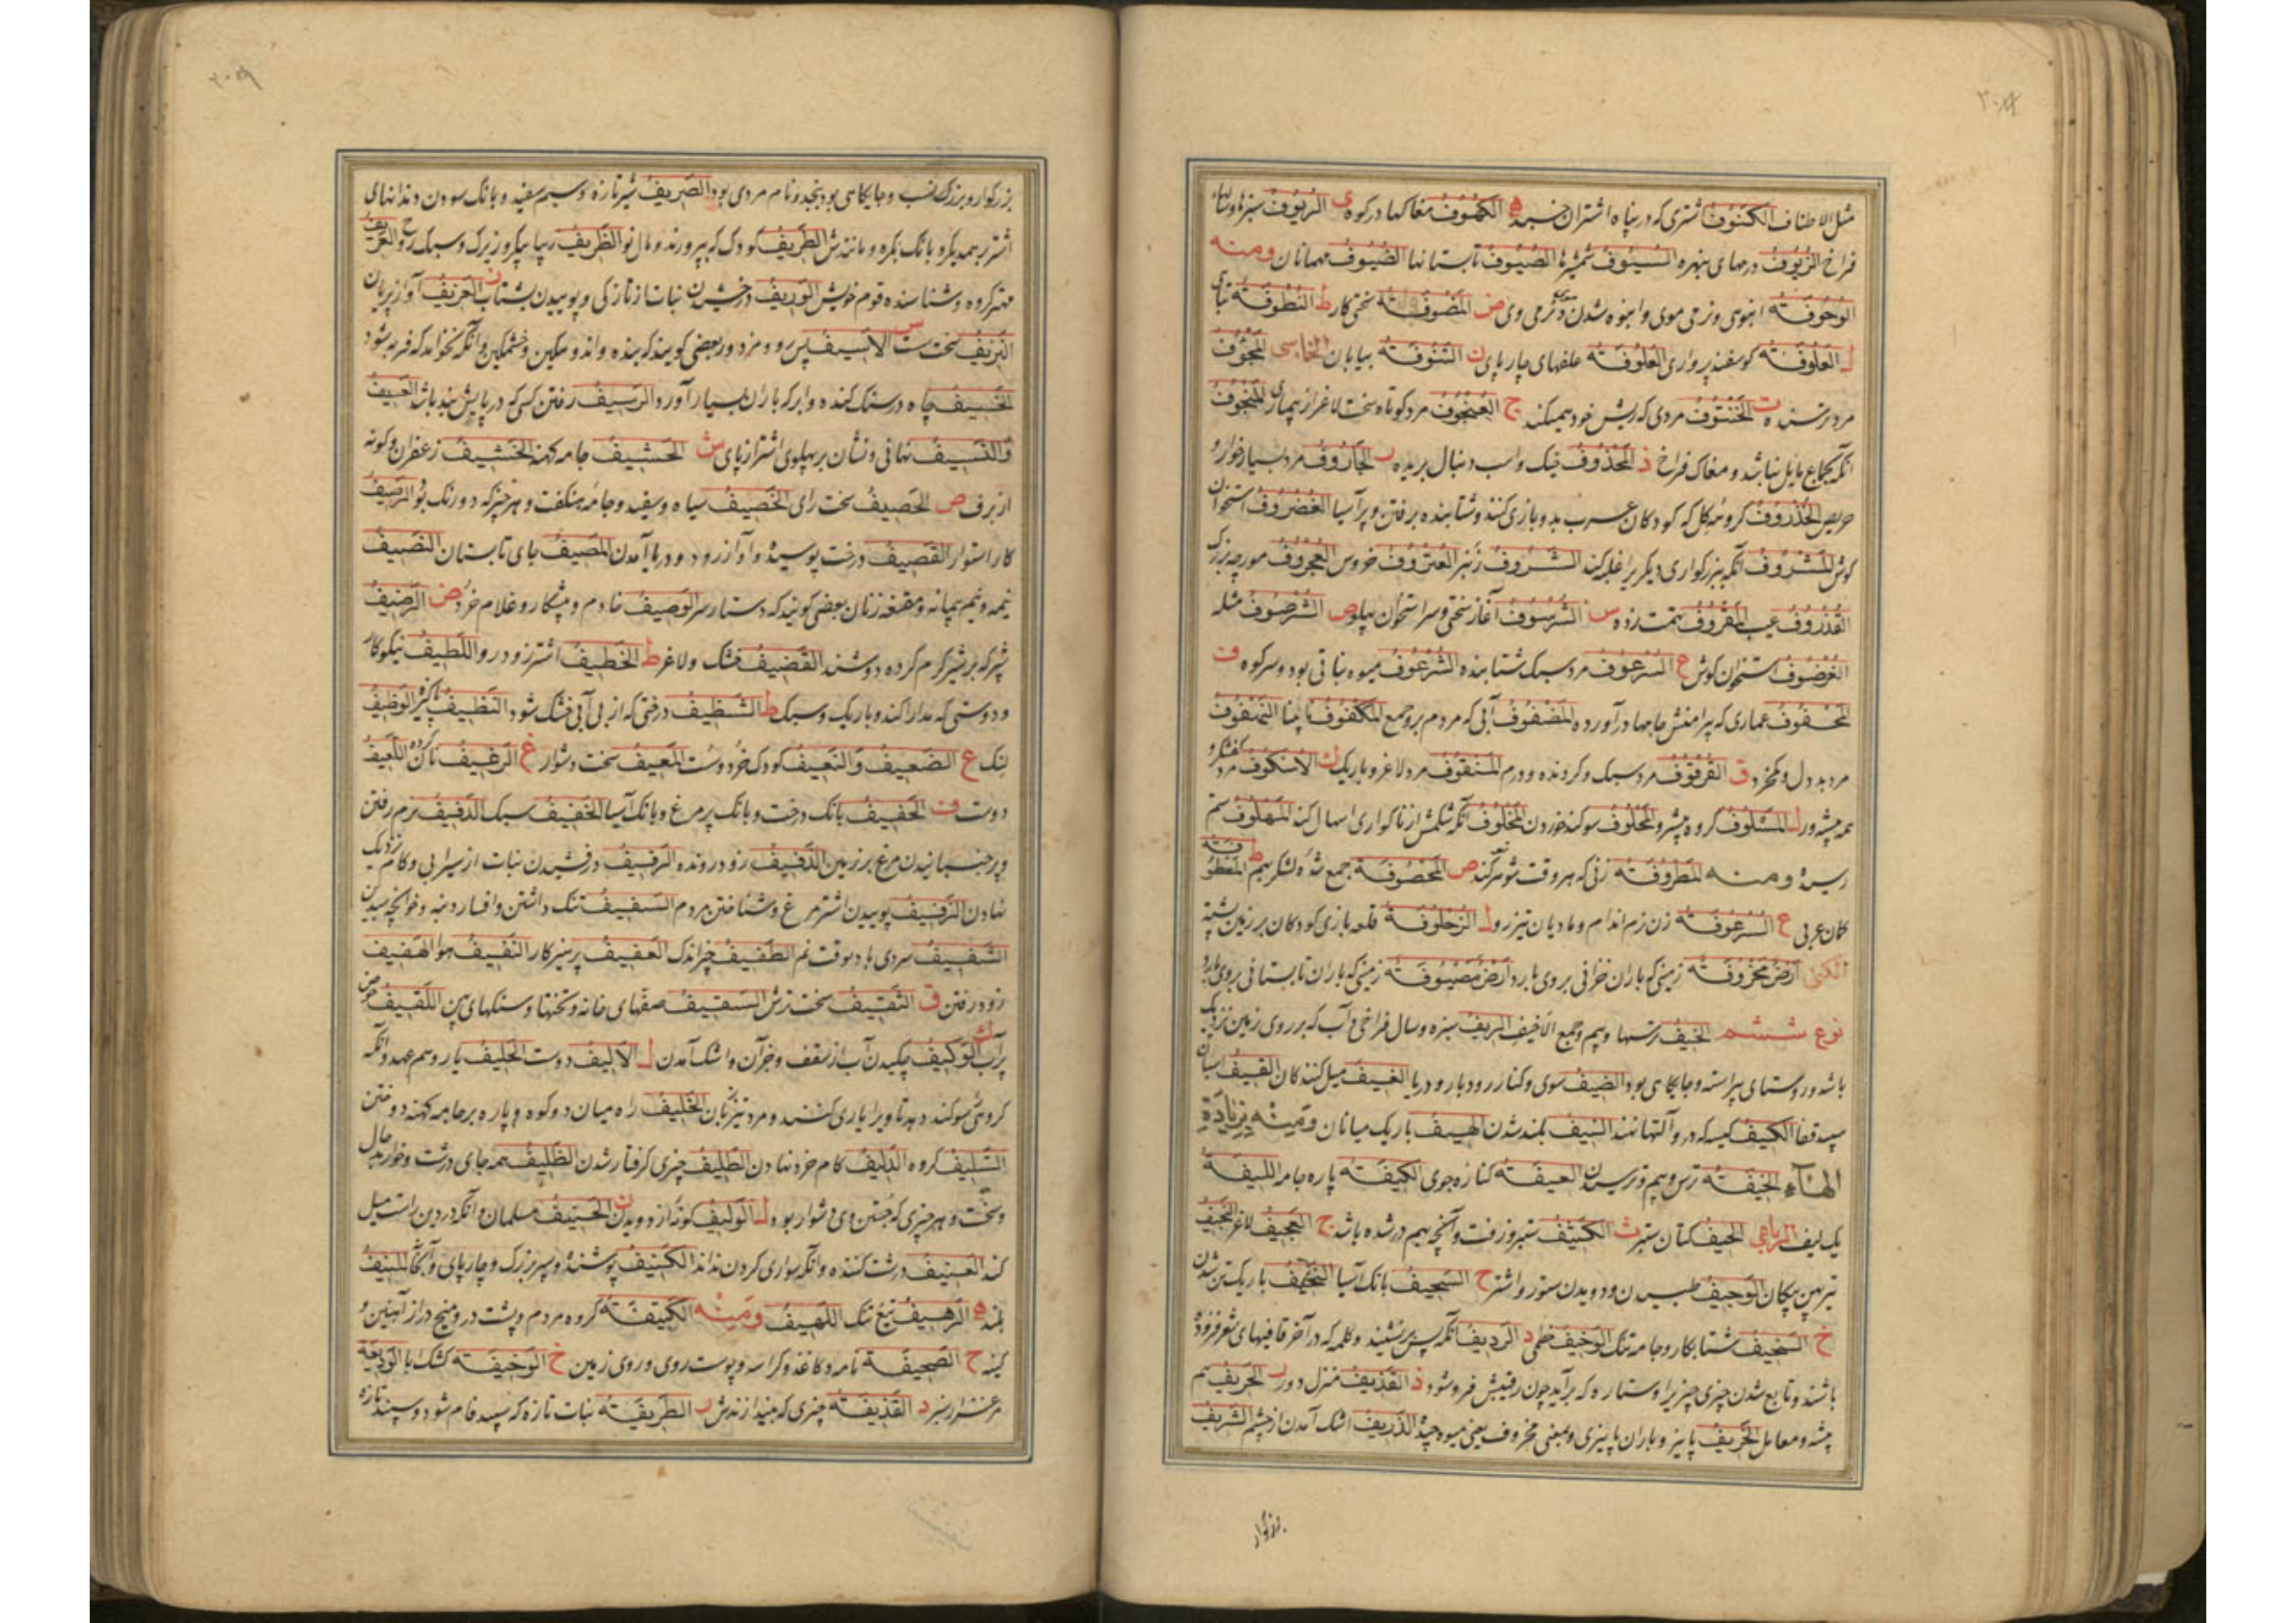 مثل الاطناف الکنوف اشتری که در پناه اشتران خسبد ه الکهوف مغاکها در کوه ی الریوف سبزها
فراخ الزیوف درمهای بنهره السیوف شمشیرها الصیوف تابستانها الضیوف مهمانان ومنه
الوحوفة انبوهی ونرمی موی وانبوه شدن ونرمی وی ض المضوفة سختی کار ط النطوفة
ل العلوفة کوسفند پرواری العلوفة علفهای چارپای ن التنوفة بیابان الخماسی
مرد ترسنده ت الخنتوف مردی که ریش خود همیکند ج العنجوف مرد کوتاه سخت لاغر از بیماری المنجوف
انکه بجماع مایل نباشد ومغاک فراخ ذ المحذوف خیک واسب دنبال بریده ر الجاروف مرد بسیار خوار و
حریص الخذروف کروهه کل که کودکان عرب بدو بازی کنند وشتابنده برفتن وپر آسیا الغضروف استخوان
کوش المشروف انکه ببزرکواری دیکر برا غلبه کند الشروف العتروف خروس العجروف مورچه بزرک
القذروف عیب المقروف تهمت زده س الشرسوف آغاز سختی وسر استخوان پهلو ص الشرصوف مثله
الغرضوف استخوان کوش ع السرعوف مرد سبک شتابنده الشرعوف میوه نباتی بود وسر کوه ف
المحفوف عماری که پیرامنش جامها درآورده المضفوف آبی که مردم برو جمع المکفوف نابینا
مرد بد دل وکمخرد ق القرقوف مرد سبک وکردنده ودرم المنقوف مرد لاغر وباریک ک الاسکوف مرد کفشکر و
همه پیشه ور ل السلوف کروه پیشرو المحلوف سوکند خوردن المخلوف انکه شکمش از ناکواری اسهال کند الملهوف ستم
رسیده ومنه المطروفة زنی که هر وقت شوهر کند ص المحصوفة جمع شده لشکر بهم
کمان عربی ع السرعوفة زن نرم اندام ومادیان تیزرو ل الزحلوفة قلعه بازی کودکان بر زمین پشته
الکنی ارض مخروفة زمینی که باران خزانی بروی بارد ارض مصیوفة زمینی که باران تابستانی بروی بارد
نوع ششم الخیف ترسها وبیم وجمع الاخیف الریف سبزه وسال فراخی وآب که بر روی زمین نزدیک
باشد وروستای پیراسته وجایکاهی بود الضیف سوی وکنار رودبار ودریا الغیف میل کنندکان القیف
سپید قفا الکیف کیسه که درو آلتها نهند النیف بلند شدن الهیف باریک میانان ومنه بزیادة
الهاء الخیفة ترس وبیم وترسیدن العیفة کناره جوی الکیفة پاره جامه اللیفة
یک لیف الرباعی الحیف کتان ستبر ث الکثیف ستبر وزفت وآنچه بهم در شده باشد ج العجیف لاغر النجیف
تیر پهن پیکان الوجیف طپیدن ودویدن ستور واشتر ح السحیف بانک آسیا النحیف باریک تن شدن
خ السخیف شتابکار وجامه تنک الوخیف خطمی د الردیف انکه پس بر نشیند وکلمه که در آخر قافیهای شعر فزوده
باشند وتابع شدن چیزی چیزیرا وستاره که برآید چون رقیبش فرو شود ذ القذیف منزل دور ر الحریف هم
پیشه ومعامل الخریف پاییز وباران پاییزی وبمعنی مخروف یعنی میوه چیده الذریف اشک آمدن از چشم الشریف
بزرکوار
بزرکوار وبزرک نسب وجایکاهی بود بنجد ونام مردی بود الصریف شیر تازه وسیم سفید وبانک سودن دندانهای
اشتر بهمدیکر وبانک بکره ومانندش الطریف کودک که بپرورند ومال نو الظریف زیبا پیکر وزیرک وسبک روح العریف
مهتر کروه وشناسنده قوم خویش الوریف درخشیدن نبات از تازکی وپوییدن بشتاب ز العزیف آواز پریان
النزیف سخت مست س الاسیف پیررو ومزدور بعضی کویند که بنده واندوهکین وخشمکین وانکه نخواهد که فربه شود
الخسیف چاه در سنک کنده وابر که باران بسیار آورد الرسیف رفتن کسی که در پایش بند باشد العسیف
والنسیف نهانی ونشان بر پهلوی اشتر از پای ش الحشیف جامه کهنه الخشیف زعفران وکونه
از برف ص الحصیف سخت رای الخصیف سیاه وسفید وجامه هنکفت وهر چیز که دو رنک بود الرصیف
کار استوار القصیف درخت پوسیده وآواز رود ودرها آمدن المصیف جای تابستان النصیف
نیمه ونیم پیمانه ومقنعه زنان بعضی کویند که دستار سر الوصیف خادم وپیشکار وغلام خرد ض الرضیف
شیر که بر شیر کرم کرده دوشند القضیف خشک ولاغر ط الخطیف اشتر زود رو اللطیف نیکوکار
ودوستی که مدارا کند وباریک وسبک ظ الشظیف درختی که از بی آبی خشک شود النظیف پاکیزه الوظیف
لنک ع الضعیف والنعیف کودک خرد وسست المعیف سخت دشوار غ الرغیف نان کرده اللغیف
دوست ف الحفیف بانک درخت وبانک پر مرغ وبانک آسیا الخفیف سبک الدفیف نرم رفتن
وپر جنبانیدن مرغ بر زمین الذفیف زود رونده الرفیف درفشیدن نبات از سیرابی وکام نزدیک
نهادن الزفیف پوییدن اشتر مرغ وشتافتن مردم السفیف تنک داشتن وافسار دنبه
الشفیف سردی باد بوقت نم الطفیف چیز اندک العفیف پرهیزکار النفیف هوا الهفیف
زود رفتن ق الثقیف سخت ترش السقیف صفهای خانه وتختها وسنکهای پهن اللقیف حوض
پر آب ک الوکیف چکیدن آب از سقف وجز آن واشک آمدن ل الالیف دوست الحلیف یار وهم عهد وانکه
کروهی سوکند دهد تا ویرا یاری کنند ومرد تیز زبان الخلیف راه میان دو کوه وپاره بر جامه کهنه دوختن
السلیف کروه الدلیف کام خرد نهادن الطلیف چیزی کرفتار شدن الظلیف همه جای درشت وخوار بدحال
وسخت وهر چیزی که جستن وی دشوار بود ل الولیف کونه از دویدن ن الحنیف مسلمان وانکه در دین راست میل
کند العنیف درشت کننده وانکه سواری کردن نداند الکنیف پوشنده وسپر بزرک وچارپای وآبخانه المنیف
بلند ه الرهیف تیغ تنک اللهیف ومنه الکتیفة کروه مردم وپشت در ومیخ دراز آهنین و
کینه ح الصحیفة نامه وکاغذ وکراسه وپوست روی وروی زمین خ الوخیفة کشک با
مرغزار سبز د القذیفة چیزی که بیندازندش ر الطریفة نبات تازه که سپید فام شود وسپید تازه